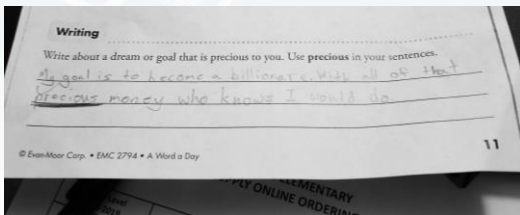 Writing
Write about a dream or goal that is precious to you. Use precious in your sentences.
My goal is to become a billionare. With all of that
precious money who knows I would do.
11
© Evan-Moor Corp. • EMC 2794 • A Word a Day
ELEMENTARY
PLY ONLINE ORDERIN
Level
2019